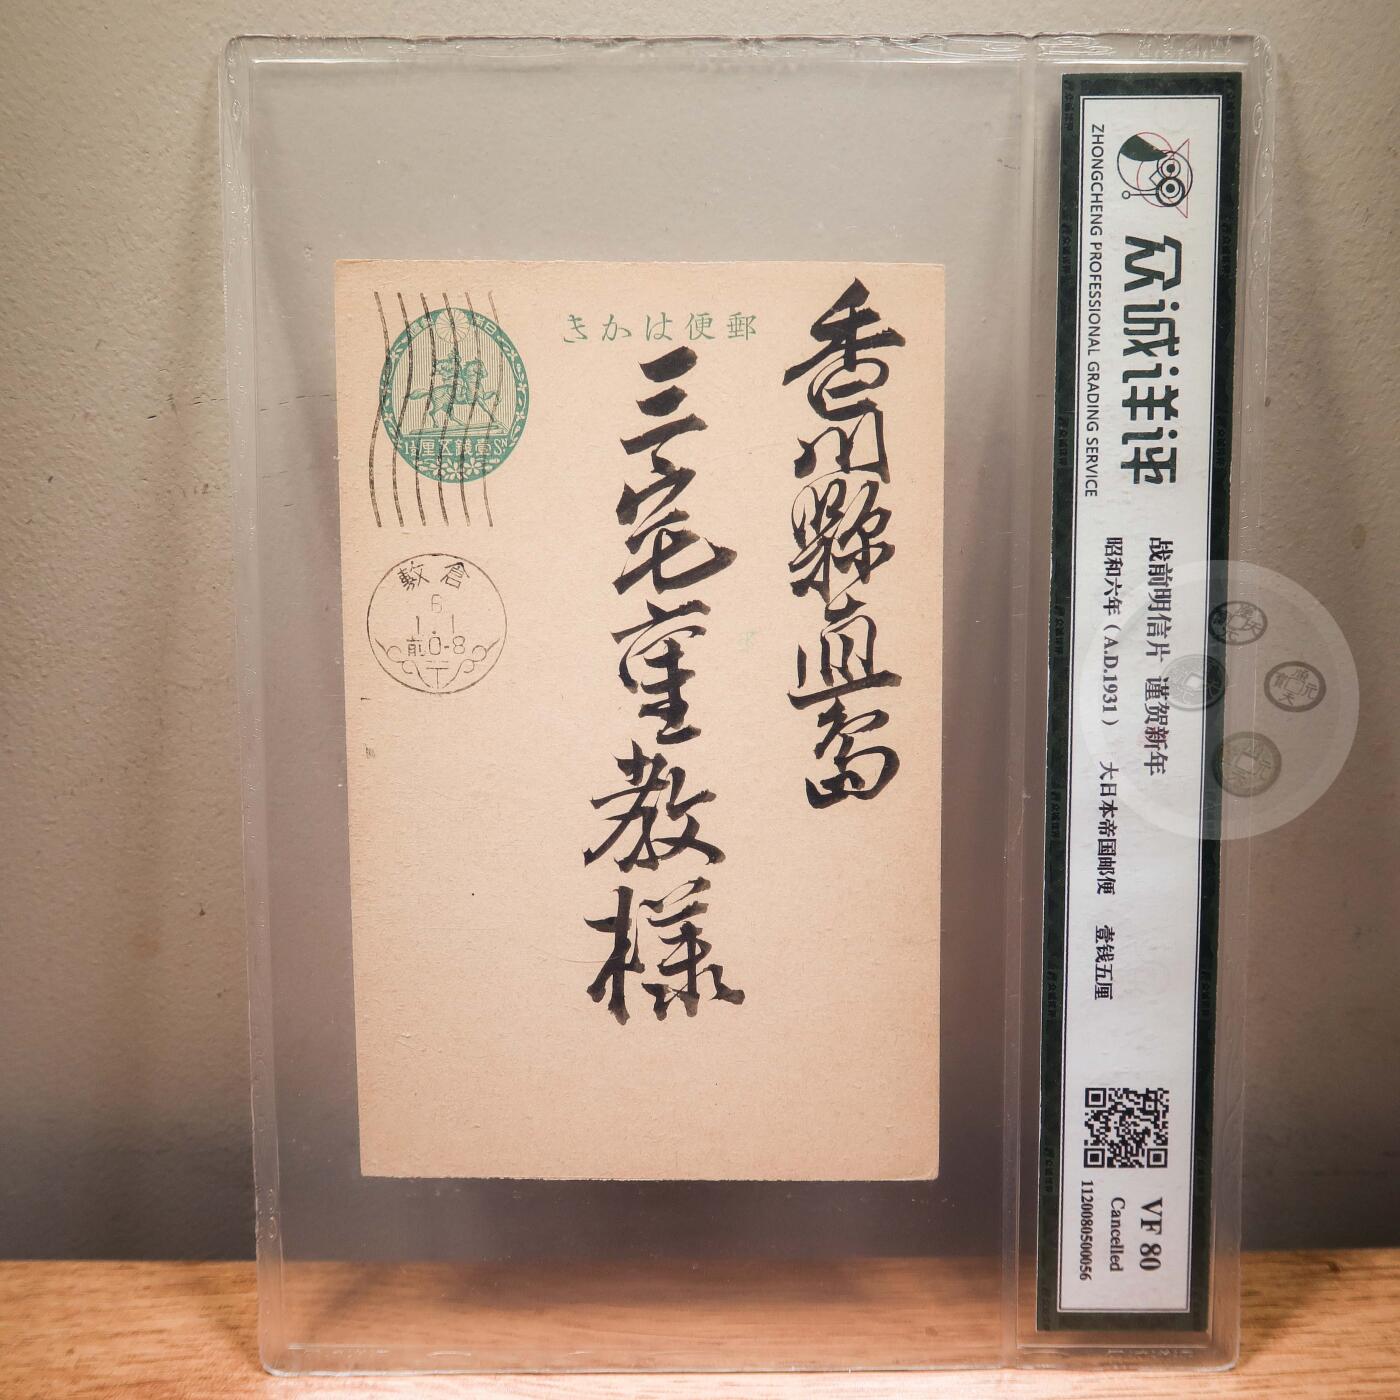 郵便はかき
日本
壹錢五厘
SN
香川縣直島
三宅重教樣
倉敷
6
1.1
前0-8
众诚评评
ZHONGCHENG PROFESSIONAL GRADING SERVICE
战前明信片 谨贺新年
昭和六年（A.D.1931） 大日本帝国邮便 壹钱五厘
VF 80
Cancelled
1120080500056